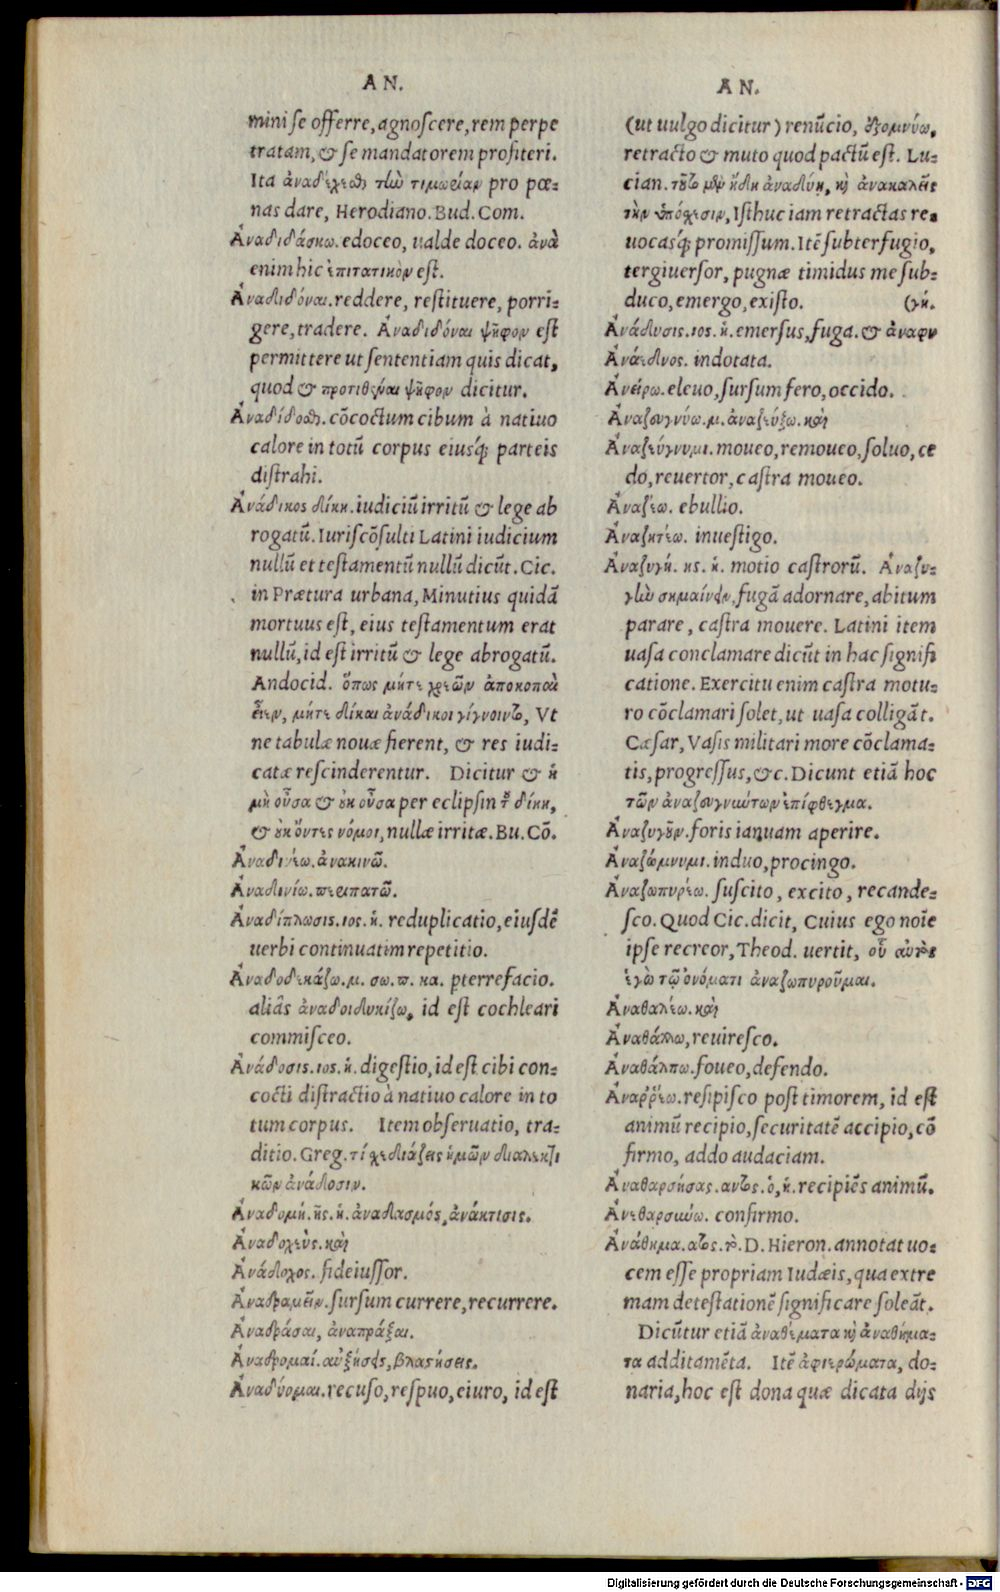 AN.
mini se offerre, agnoscere, rem perpe
tratam, & se mandatorem profiteri.
Ita ἀναδέχεσθαι τὴν τιμωρίαν pro pœ-
nas dare, Herodiano. Bud. Com.
Ἀναδιδάσκω. edoceo, ualde doceo. ἀνὰ
enim hic ἐπιτατικὸν est.
Ἀναδιδόναι. reddere, restituere, porri-
gere, tradere. Ἀναδιδόναι ψῆφον est
permittere ut sententiam quis dicat,
quod & προτιθέναι ψῆφον dicitur.
Ἀναδίδοσθαι. cōcoctum cibum à natiuo
calore in totū corpus eiusq́; parteis
distrahi.
Ἀνάδικος δίκη. iudiciū irritū & lege ab
rogatū. Iuriscōsulti Latini iudicium
nullū et testamentū nullū dicūt. Cic.
in Prætura urbana, Minutius quidā
mortuus est, eius testamentum erat
nullū, id est irritū & lege abrogatū.
Andocid. ὅπως μήτε χρεῶν ἀποκοπαὶ
εἶεν, μήτε δίκαι ἀνάδικοι γίγνοιντο, Vt
ne tabulæ nouæ fierent, & res iudi-
catæ rescinderentur. Dicitur & ἡ
μὴ οὖσα & οὐκ οὖσα per eclipsin τ͂ δίκη,
& οὐκ ὄντες νόμοι, nullæ irritæ. Bu. Cō.
Ἀναδινέω. ἀνακινῶ.
Ἀναδινίω. περιπατῶ.
Ἀναδίπλωσις. ιος. ἡ. reduplicatio, eiusdē
uerbi continuatim repetitio.
Ἀναδοδικάζω. μ. σω. π. κα. pterrefacio.
aliâs ἀναδοιδυκίζω, id est cochleari
commisceo.
Ἀνάδοσις. ιος. ἡ. digestio, id est cibi con-
cocti distractio à natiuo calore in to
tum corpus. Item obseruatio, tra-
ditio. Greg. τί χεδιάζεις ἡμῶν διαλεκτι
κῶν ἀνάδοσιν.
Ἀναδομή. ῆς. ἡ. ἀναδασμός, ἀνάκτισις.
Ἀναδοχεὺς. καὶ
Ἀνάδοχος. fideiussor.
Ἀναδραμεῖν. sursum currere, recurrere.
Ἀναδράσαι, ἀναπράξαι.
Ἀναδρομαί. αὐξήσεις, βλαστήσεις.
Ἀναδύομαι. recuso, respuo, eiuro, id est
AN.
(ut uulgo dicitur) renūcio, ἐξομνύω,
retracto & muto quod pactū est. Lu-
cian. τοῦτο μὲν ἤδη ἀναδύῃ, καὶ ἀνακαλεῖς
τὴν ὑπόσχεσιν, Isthuc iam retractas re-
uocasq́; promissum. Itē subterfugio,
tergiuersor, pugnæ timidus me sub-
duco, emergo, existo. (γή.
Ἀνάδυσις. ιος. ἡ. emersus, fuga. & ἀναφυ
Ἀνάεδνος. indotata.
Ἀνείρω. eleuo, sursum fero, occido.
Ἀναζευγνύω. μ. ἀναζεύξω. καὶ
Ἀναζεύγνυμι. moueo, remoueo, soluo, ce
do, reuertor, castra moueo.
Ἀναζέω. ebullio.
Ἀναζητέω. inuestigo.
Ἀναζυγή. ῆς. ἡ. motio castrorū. Ἀναζυ-
γὴν σημαίνειν, fugā adornare, abitum
parare, castra mouere. Latini item
uasa conclamare dicūt in hac signifi
catione. Exercitu enim castra motu-
ro cōclamari solet, ut uasa colligāt.
Cæsar, Vasis militari more cōclama-
tis, progressus, &c. Dicunt etiā hoc
τῶν ἀναζευγνύντων ἐπίφθεγμα.
Ἀναζυγοῦν. foris ianuam aperire.
Ἀναζώμνυμι. induo, procingo.
Ἀναζωπυρέω. suscito, excito, recande-
sco. Quod Cic. dicit, Cuius ego noīe
ipse recreor, Theod. uertit, οὗ αὐτὸς
ἐγὼ τῷ ὀνόματι ἀναζωπυροῦμαι.
Ἀναθαλέω. καὶ
Ἀναθάλλω, reuiresco.
Ἀναθάλπω. foueo, defendo.
Ἀναῤῥέω. resipisco post timorem, id est
animū recipio, securitatē accipio, cō
firmo, addo audaciam.
Ἀναθαρσήσας. αντος. ὁ, ἡ. recipiēs animū.
Ἀνεθαρσύνω. confirmo.
Ἀνάθημα. ατος. τὸ. D. Hieron. annotat uo-
cem esse propriam Iudæis, qua extre
mam detestationē significare soleāt.
Dicūtur etiā ἀναθέματα καὶ ἀναθήμα-
τα additamēta. Itē ἀφιερώματα, do-
naria, hoc est dona quæ dicata dijs
Digitalisierung gefördert durch die Deutsche Forschungsgemeinschaft - DFG